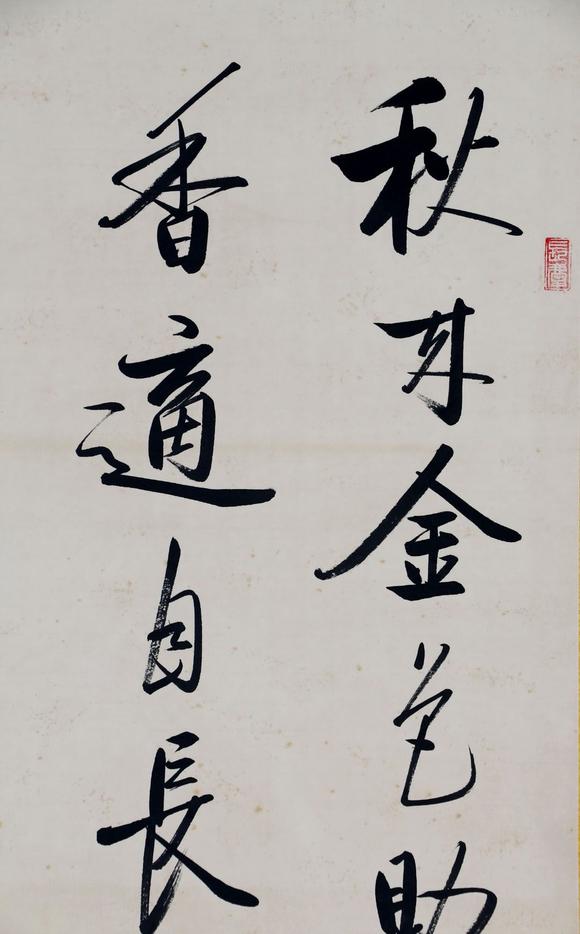 秋來金色助
香適自長